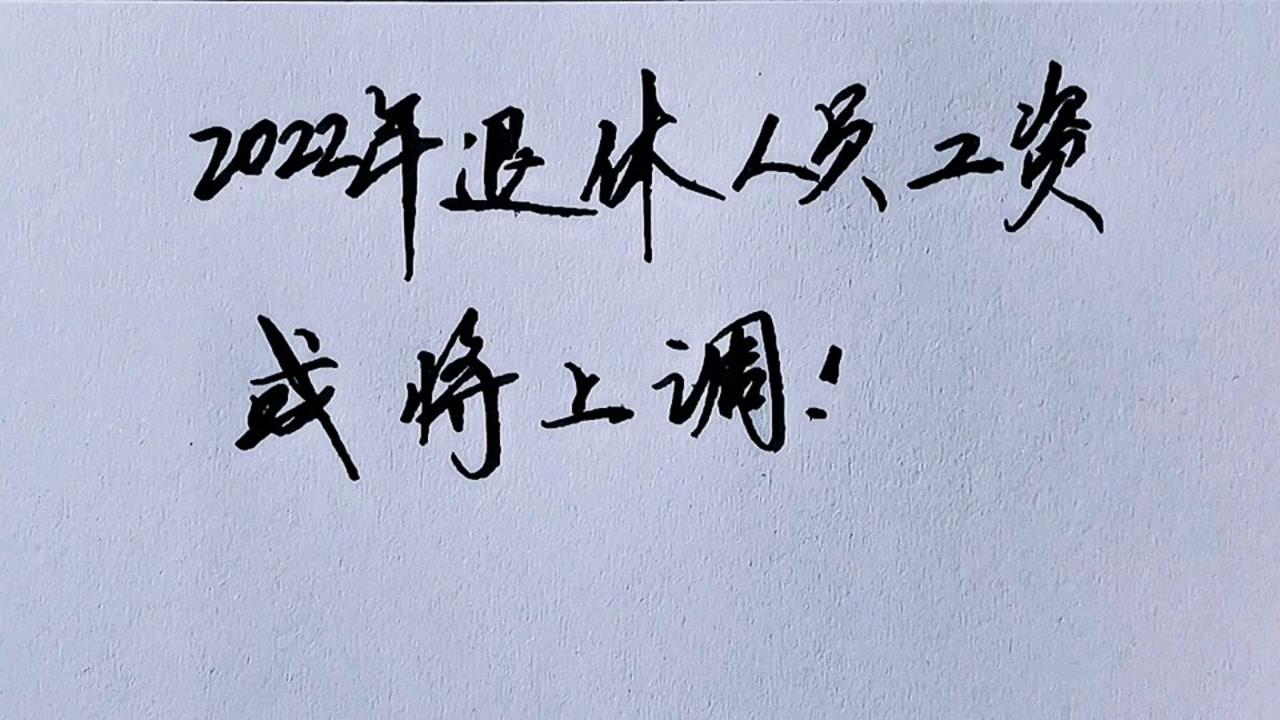 2022年退休人员工资
或将上调!